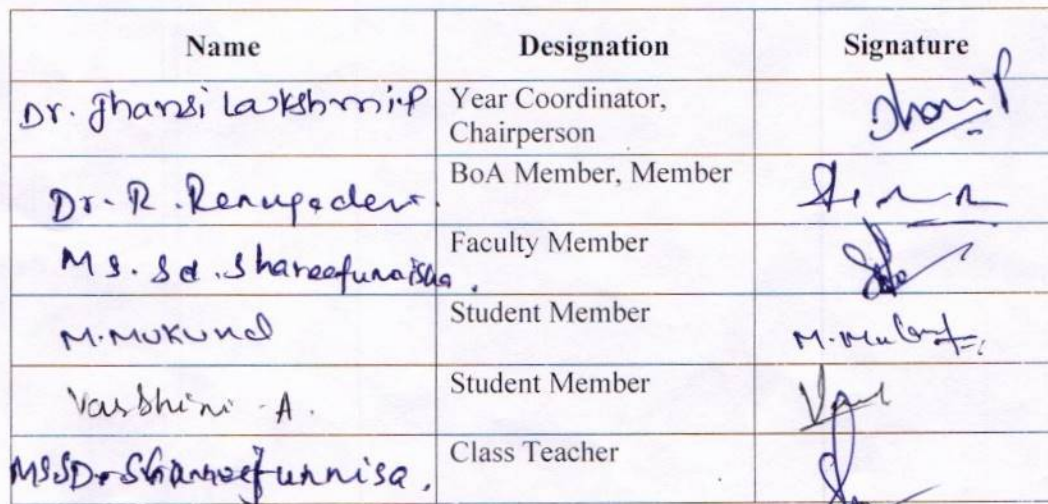 Name Designation Signature
Dr. Jhansi Lakshmi.P Year Coordinator,
Chairperson
Dr. R. Renugadevi. BoA Member, Member
Ms. Sd. Shareefunnisha. Faculty Member
M. MUKUND Student Member M. Mukund
Varshini A. Student Member
MS SD. Shareefunnisa, Class Teacher